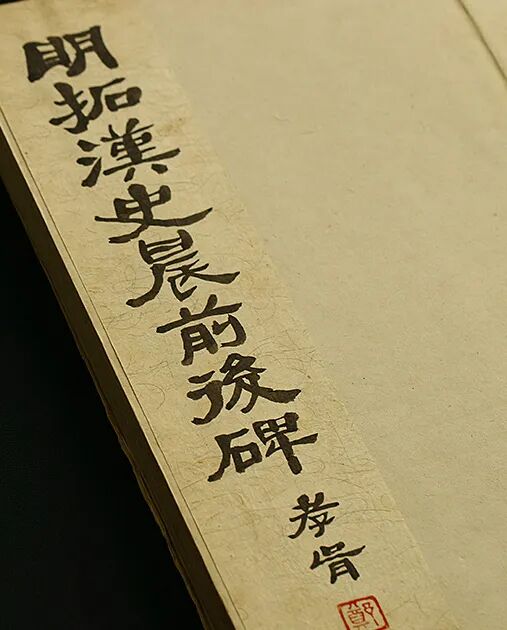 明拓漢史晨前後碑
孝胥
鄭